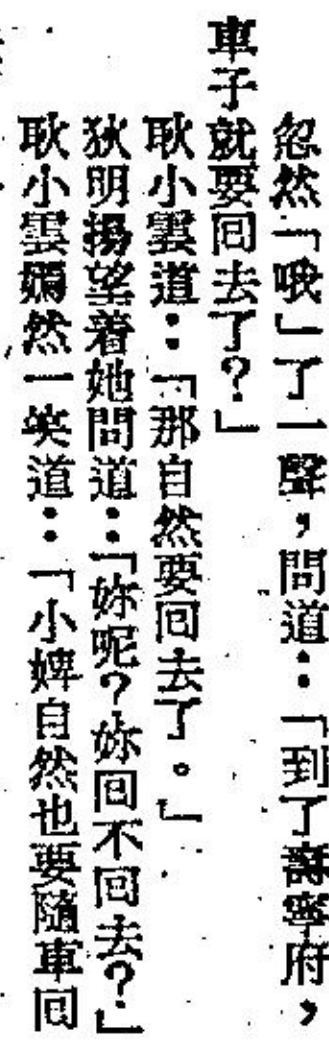 忽然「哦」了一聲，問道：「到了壽寧府，
車子就要囘去了？」
耿小雲道：「那自然要囘去了。」
狄明揚望着她問道：「妳呢？妳囘不囘去？」
耿小雲嫣然一笑道：「小婢自然也要隨車囘